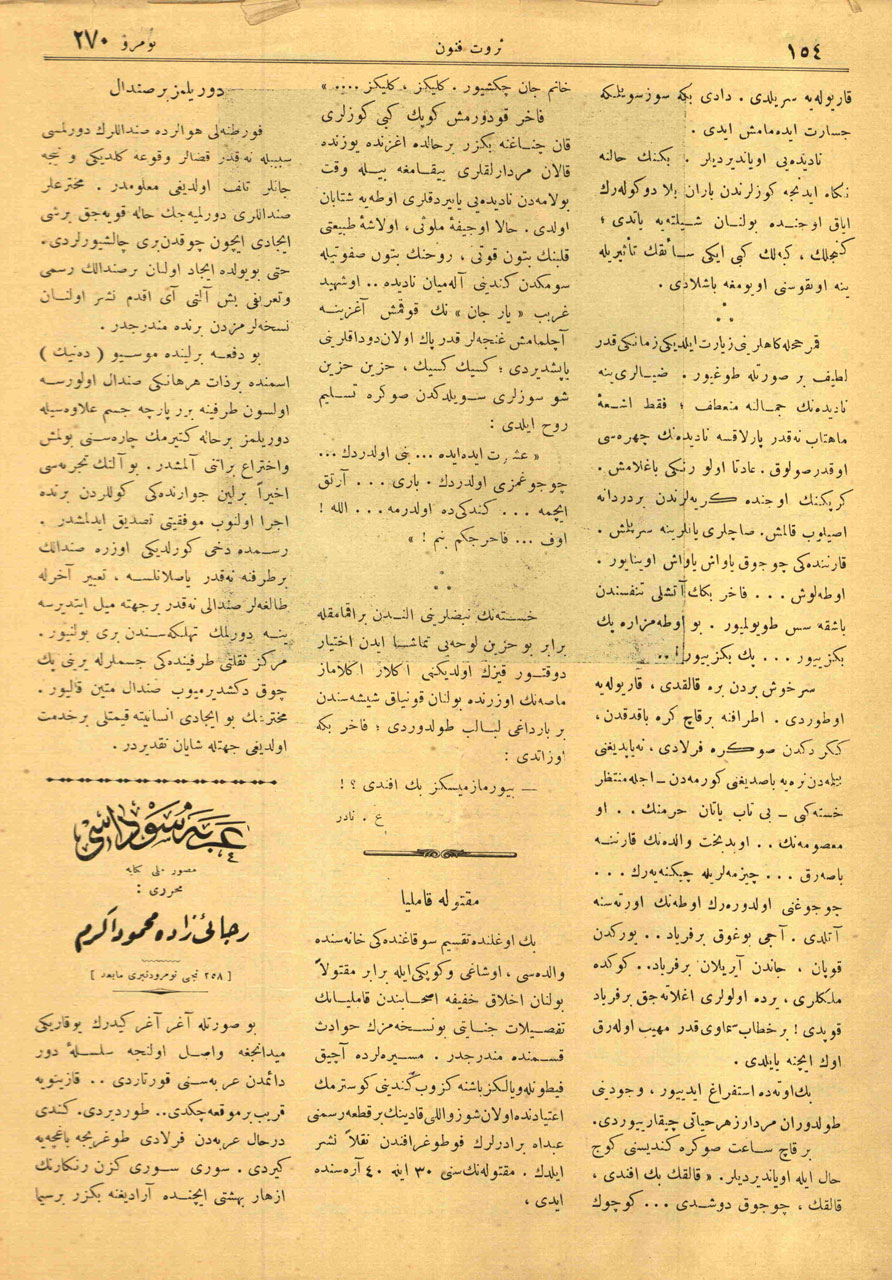 ١٥٤
ثروت فنون
نومرو ٢٧٠
قاریوله‌یه سریلدی . دادی بكه سوز سویلمكه
جسارت ایده‌مامش ایدی .
نادیده‌یی اویاندیردیلر . بكنك حالنه
نكاه ایدنجه كوزلرندن باران بلا دوكوله‌رك
ایاق اوجنده بولنان شیلته‌یه یاتدی ؛
كنجلك ، كبه‌لك كبی ایكی سائقك تأثیریله
ینه اویقوسنی اویومغه باشلادی .
قمر حجله‌كاهلرینی زیارت ایلدیكی زمانكی قدر
لطیف بر صورتله طوغیور . ضیالری ینه
نادیده‌نك جمالنه منعطف ؛ فقط اشعهٔ
ماهتاب نه‌قدر پارلاقسه نادیده‌نك چهره‌سی
اوقدر صولوق . عادتا اولو رنكی باغلامش .
كرپیكنك اوجنده كریه‌لرندن بر دردانه
اصیلوب قالمش . صاچلری یانلرینه سرپلمش .
قارننده‌كی چوجوق یاواش یاواش اوینایور .
اوطه‌لوش . . . فاخر بكك آتشلی تنفسندن
باشقه سس طویولمیور . بو اوطه مزاره پك
بكزییور . . . پك بكزییور ! . .
سرخوش بردن بره قالقدی ، قاریوله‌یه
اوطوردی . اطرافنه بر قاچ كره باقدقدن ،
ككردكدن صوكره فرلادی ، نه‌یاپدیغنی
بیلمه‌دن نره‌یه باصدیغنی كورمه‌دن ـ اجله منتظر
خسته كبی ـ بی تاب یاتان حرمنك . . او
معصومه‌نك . . او بدبخت والده‌نك قارننه
باصه‌رق . . . چیزمه‌لریله چیكنه‌یه‌رك . . .
چوجوغنی اولدوره‌رك اوطه‌نك اورته‌سنه
آتلدی . آجی بوغوق بر فریاد . . یوركدن
قوپان ، جاندن آیریلان بر فریاد . . كوكده
ملكلری ، یرده اولولری اغلاته‌جق بر فریاد
قوپدی ! بر خطاب سماوی قدر مهیب اوله‌رق
اوك ایچنه یایلدی .
بك اوته‌ده استفراغ ایدییور ، وجودینی
طولدوران مردار زهر حیاتی چیقارییوردی .
بر قاچ ساعت صوكره كندیسنی كوج
حال ایله اویاندیردیلر . « قالقك بك افندی ،
قالقك ، چوجوق دوشدی . . . كوچوك
خانم جان چكشیور . كلیكز ، كلیكز . . . . »
فاخر قودورمش كوپك كبی كوزلری
قان چناغنه بكزر بر حالده اغزنده یوزنده
قالان مردارلقلری بیقامغه بیله وقت
بولامه‌دن نادیده‌یی یاتیردقلری اوطه‌یه شتابان
اولدی . حالا او جیفهٔ ملوثی ، اولاشهٔ طبیعتی
قلبنك بتون قوتی ، روحنك بتون صفوتیله
سومكدن كندینی آله‌میان نادیده . . اوشهید
غریب « یار جان » نك قوقمش آغزینه
آچلمامش غنچه‌لر قدر پاك اولان دوداقلرینی
یاپشدیردی ؛ كسیك كسیك ، حزین حزین
شو سوزلری سویلدكدن صوكره تسلیم
روح ایلدی :
« عشرت ایده ایده . . . بنی اولدردك . . .
چوجوغمزی اولدردك . باری . . . آرتق
ایچمه . . . كندكی‌ده اولدرمه . . . الله !
اوف . . . فاخرجكم بنم ! »
خسته‌نك نبضلرینی الندن براقمامقله
برابر بو حزین لوحه‌یی تماشا ایدن اختیار
دوقتور قیزك اولدیكنی آكلار آكلاماز
ماصه‌نك اوزرنده بولنان قونیاق شیشه‌سندن
بر بارداغی لبالب طولدوردی ؛ فاخر بكه
اوزاتدی :
— بیورمازمیسكز بك افندی ؟ !
ع . نادر
مقتوله قاملیا
بك اوغلنده تقسیم سوقاغنده‌كی خانه‌سنده
والده‌سی ، اوشاغی وكوپكی ایله برابر مقتولاً
بولنان اخلاق خفیفه اصحابندن قاملیانك
تفصیلات جنایتی بونسخه‌مزك حوادث
قسمنده مندرجدر . مسیره‌لرده آچیق
فیطونله ویالكز باشنه كزوب كندینی كوسترمك
اعتیادنده اولان شو زواللی قادینك بر قطعه رسمنی
عبدالله برادرلرك فوطوغرافندن نقلاً نشر
ایلدك . مقتوله‌نك سنی ٣٠ ایله ٤٠ آره‌سنده
ایدی ،
دوریلمز بر صندال
فورطنه‌لی هوالرده صنداللرك دورلمسی
سببیله نه‌قدر قضالر وقوعه كلدیكی و نیجه
جانلر تلف اولدیغی معلومدر . مخترعلر
صنداللری دورلمیه‌جك حاله قویه‌جق برشی
ایجادی ایچون چوقدنبری چالشیورلردی .
حتی بویولده ایجاد اولنان بر صندالك رسمی
وتعریفی بش آلتی آی اقدم نشر اولنان
نسخه‌لرمزدن برنده مندرجدر .
بو دفعه برلینده موسیو ( ده‌نیك )
اسمنده بر ذات هر هانكی صندال اولورسه
اولسون طرفینه بر پارچه جسم علاوه‌سیله
دوریلمز بر حاله كتیرمك چاره‌سنی بولمش
واختراع براتنی آلمشدر . بو آلتك تجربه‌سی
اخیراً برلین جوارنده‌كی كوللردن برنده
اجرا اولنوب موفقیتی تصدیق ایدلمشدر .
رسمده دخی كورلدیكی اوزره صندالك
بر طرفنه نه‌قدر یاصلانلسه ، تعبیر آخرله
طالغه‌لر صندالی نه‌قدر بر جهته میل ایتدیرسه
ینه دورلمك تهلكه‌سندن بری بولنیور .
مركز ثقلتی طرفینده‌كی جسملرله یرینی پك
چوق دكشدیرمیوب صندال متین قالیور .
مخترعنك بو ایجادی انسانیته قیمتلی بر خدمت
اولدیغی جهتله شایان تقدیردر .
عربه سوداسی
مصور ملی حكایه
محرری :
رجائی زاده محمود اكرم
[ ٢٥٨ نجی نومرودنبری مابعد ]
بو صورتله آغر آغر كیدرك یوقاریكی
میدانجغه واصل اولنجه سلسلهٔ دور
دائمدن عربه‌سنی قورتاردی . . قازینویه
قریب بر موقعه چكدی . . طوردیردی . كندی
درحال عربه‌دن فرلادی طوغریجه باغچه‌یه
كیردی . سوری سوری كزن رنكارنك
ازهار بهشتی ایچنده آرادیغنه بكزر بر سیما